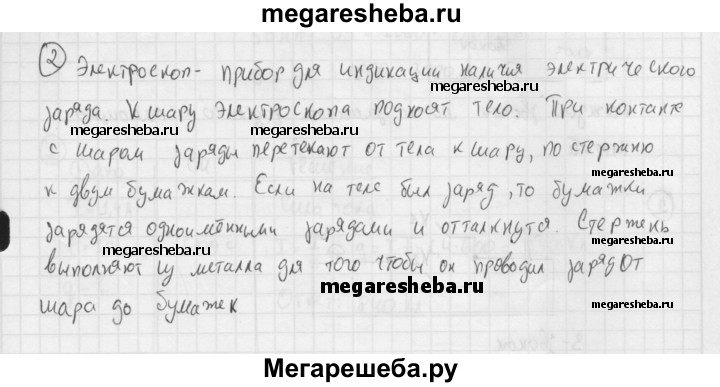 megaresheba.ru
2 Электроскоп - прибор для индикации наличия электрического
megaresheba.ru megaresheba.ru
заряда. К шару электроскопа подносят тело. При контакте
megaresheba.ru megaresheba.ru megaresheba.ru
с шаром заряды перетекают от тела к шару, по стержню
megaresheba.ru
к двум бумажкам. Если на теле был заряд, то бумажки
megaresheba.ru megaresheba.ru
зарядятся одноимёнными зарядами и оттолкнутся. Стержень
megaresheba.ru megaresheba.ru
выполняют из металла для того чтобы он проводил заряд от
megaresheba.ru
шара до бумажек
megaresheba.ru
Мегарешеба.ру